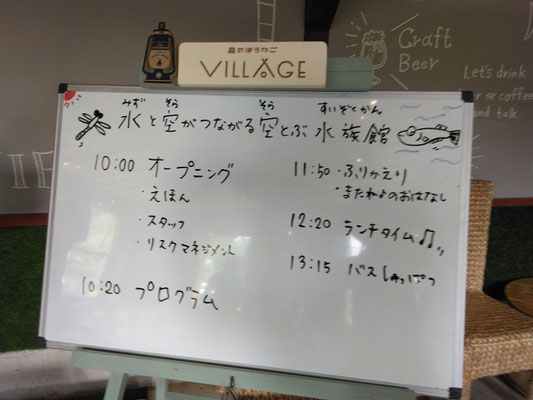 森のほうかご
VILLAGE
Craft
Beer
Let's drink
or coffee
and talk
みず そら そら すいぞくかん
水と空がつながる空とぶ水族館
10:00 オープニング
・えほん
・スタッフ
・リスクマネジメント
10:20 プログラム
11:50・ふりかえり
・またねのおはなし
12:20 ランチタイム♫
13:15 バスしゅっぱつ